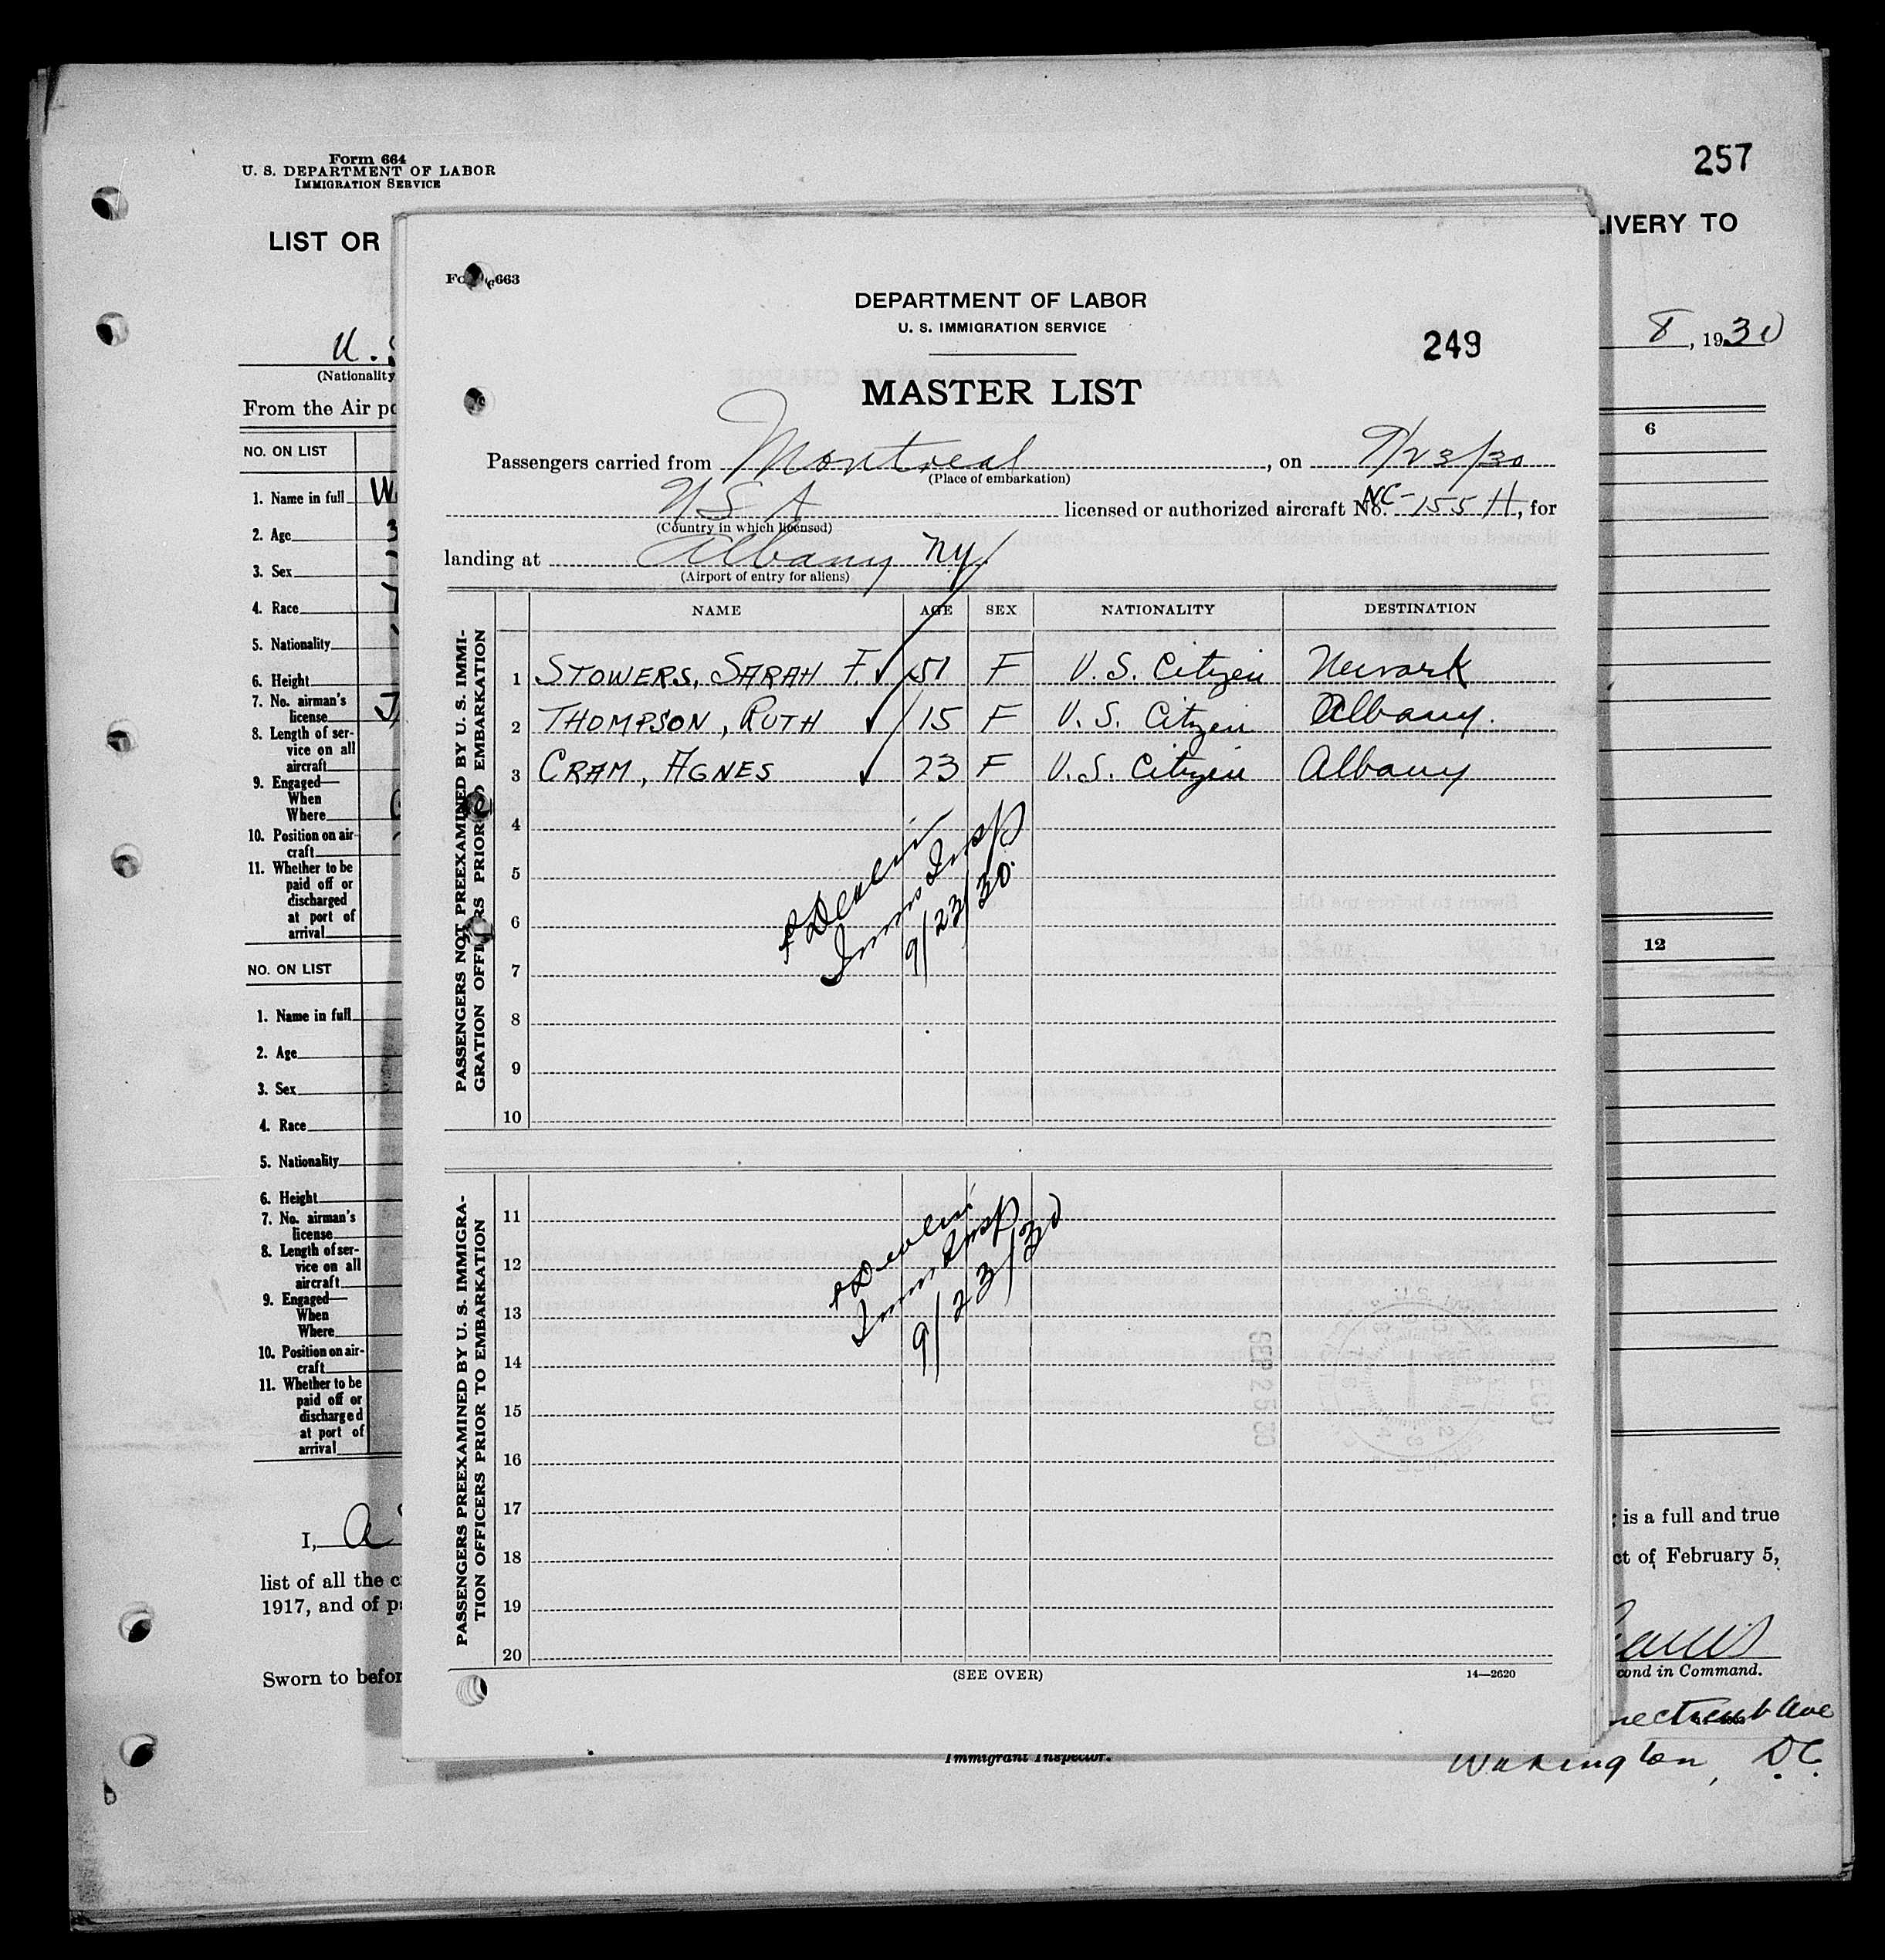 Form 664
U. S. DEPARTMENT OF LABOR
IMMIGRATION SERVICE
257
LIST OR
LIVERY TO
U. S
(Nationality
8, 1930
From the Air po
NO. ON LIST
6
1. Name in full
2. Age
3. Sex
4. Race
5. Nationality
6. Height
7. No. airman's
license
8. Length of ser-
vice on all
aircraft
9. Engaged—
When
Where
10. Position on air-
craft
11. Whether to be
paid off or
discharged
at port of
arrival
NO. ON LIST
12
1. Name in full
2. Age
3. Sex
4. Race
5. Nationality
6. Height
7. No. airman's
license
8. Length of ser-
vice on all
aircraft
9. Engaged—
When
Where
10. Position on air-
craft
11. Whether to be
paid off or
discharged
at port of
arrival
I, a
is a full and true
list of all the c
ct of February 5,
1917, and of pa
Sworn to befor
cond in Command.
necticut Ave
Washington, D.C.
Immigrant Inspector.
663
DEPARTMENT OF LABOR
U. S. IMMIGRATION SERVICE
249
MASTER LIST
Passengers carried from Montreal, on 9/23/30
(Place of embarkation)
USA licensed or authorized aircraft No. NC-155H, for
(Country in which licensed)
landing at Albany NY
(Airport of entry for aliens)
NAME AGE SEX NATIONALITY DESTINATION
PASSENGERS NOT PREEXAMINED BY U. S. IMMI-
GRATION OFFICERS PRIOR TO EMBARKATION
1 STOWERS, SARAH F. ✓ 51 F U.S. Citizen Newark
2 THOMPSON, RUTH ✓ 15 F U.S. Citizen Albany.
3 CRAM, AGNES ✓ 23 F U.S. Citizen Albany
4
5
6
7
8
9
10
Devlin
Imm Insp
9/23/30
PASSENGERS PREEXAMINED BY U. S. IMMIGRA-
TION OFFICERS PRIOR TO EMBARKATION
11
12
13
14
15
16
17
18
19
20
Devlin
Imm Insp
9/23/30
(SEE OVER)
14—2620